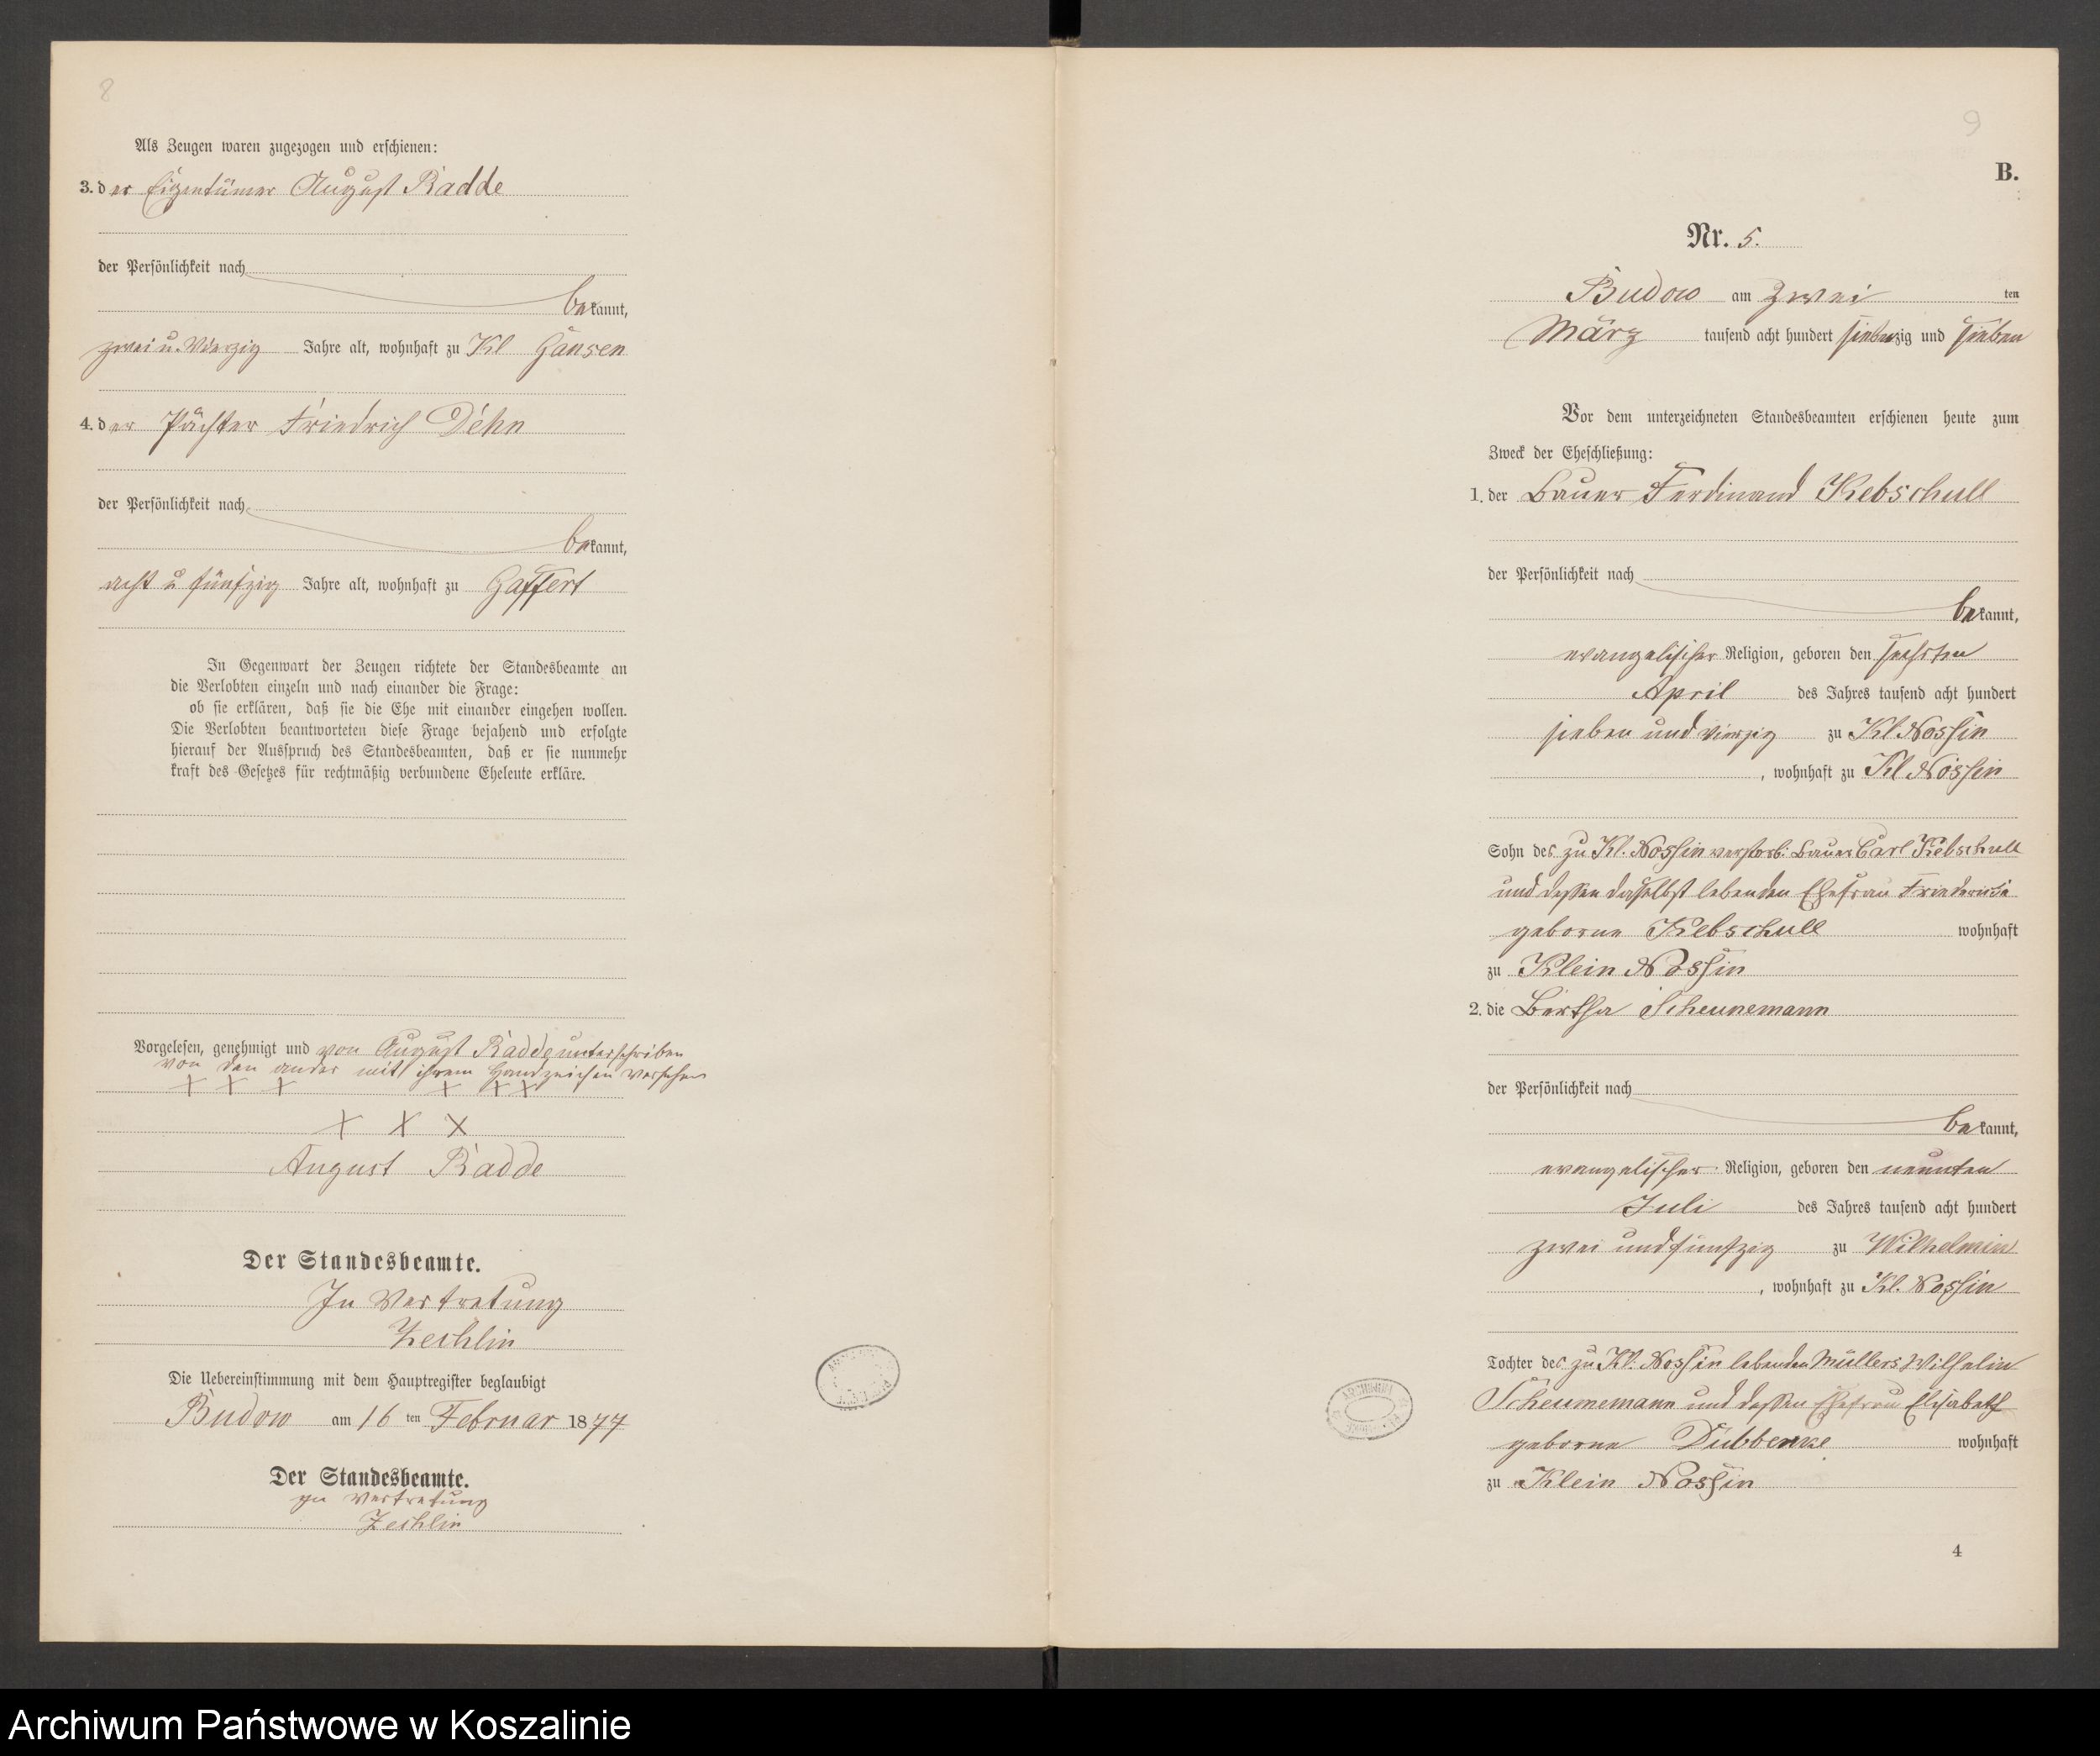 8
Als Zeugen waren zugezogen und erschienen:
3. der Eigentümer August Radde
der Persönlichkeit nach
bekannt,
zwei u. Vierzig Jahre alt, wohnhaft zu Kl Gansen
4. der Pächter Friedrich Dehn
der Persönlichkeit nach
bekannt,
acht u fünfzig Jahre alt, wohnhaft zu Gaffert
In Gegenwart der Zeugen richtete der Standesbeamte an
die Verlobten einzeln und nach einander die Frage:
ob sie erklären, daß sie die Ehe mit einander eingehen wollen.
Die Verlobten beantworteten diese Frage bejahend und erfolgte
hierauf der Ausspruch des Standesbeamten, daß er sie nunmehr
kraft des Gesetzes für rechtmäßig verbundene Eheleute erkläre.
Vorgelesen, genehmigt und von August Radde unterschriben
von den ander mit ihrem Handzeichen versehen
+ + + + + +
+ X X
August Radde
Der Standesbeamte.
In Vertretung
Zechlin
Die Uebereinstimmung mit dem Hauptregister beglaubigt
Budow am 16 ten Februar 1877
Der Standesbeamte.
In Vertretung
Zechlin
9
B.
Nr. 5.
Budow am zwei ten
März tausend acht hundert siebenzig und sieben
Vor dem unterzeichneten Standesbeamten erschienen heute zum
Zweck der Eheschließung:
1. der Bauer Ferdinand Kebschull
der Persönlichkeit nach
bekannt,
evangelischer Religion, geboren den sechsten
April des Jahres tausend acht hundert
sieben und vierzig zu Kl. Nossin
, wohnhaft zu Kl Nossin
Sohn des zu Kl. Nossin verstorb: Bauer Carl Kebschull
und dessen daselbst lebenden Ehefrau Friederike
geborne Kebschull wohnhaft
zu Klein Nossin
2. die Bertha Scheunemann
der Persönlichkeit nach
bekannt,
evangelischer Religion, geboren den neunten
Juli des Jahres tausend acht hundert
zwei und fünfzig zu Wilhelmin
, wohnhaft zu Kl. Nossin
Tochter des zu Kl. Nossin lebenden Müllers Wilhelm
Scheunemann und dessen Ehefrau Elisabeth
geborne Dubberke wohnhaft
zu Klein Nossin
4
ARCHIWUM
Archiwum Państwowe w Koszalinie